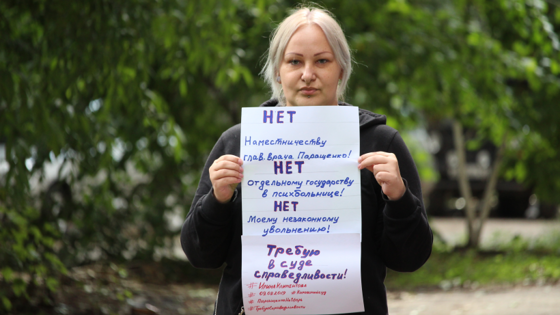 НЕТ
Наместничеству
глав. врача Паращенко!
НЕТ
отдельному государству
в психбольнице!
НЕТ
Моему незаконному
увольнению!
Требую
в суде
справедливости!